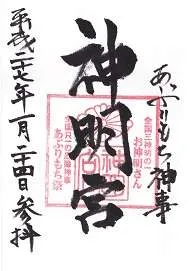 あぶりもち神事
全国三神明の一
お神明さん
神明宮
あぶりもち祭
平成二十七年一月二十四日参拝